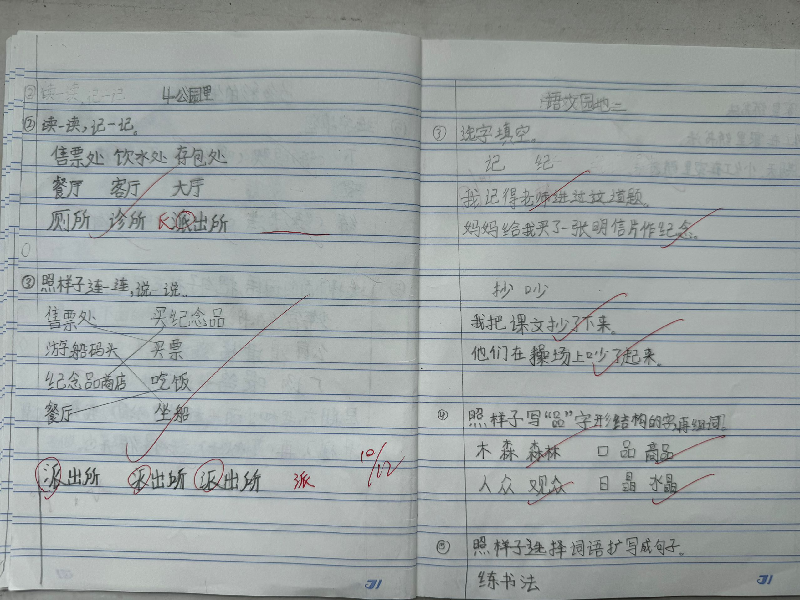 4公园里
②读一读,记一记。
售票处 饮水处 存包处
餐厅 客厅 大厅
厕所 诊所 派出所
③照样子连一连,说一说。
售票处 买纪念品
游船码头 买票
纪念品商店 吃饭
餐厅 坐船
派出所 派出所 派出所 派
10/12
语文园地二
①选字填空。
记 纪
我记得老师讲过这道题。
妈妈给我买了一张明信片作纪念。
抄 吵
我把课文抄了下来。
他们在操场上吵了起来。
④照样子写“品”字形结构的字,再组词。
木 森 森林 口 品 商品
人 众 观众 日 晶 水晶
⑤照样子选择词语扩写成句子。
练书法